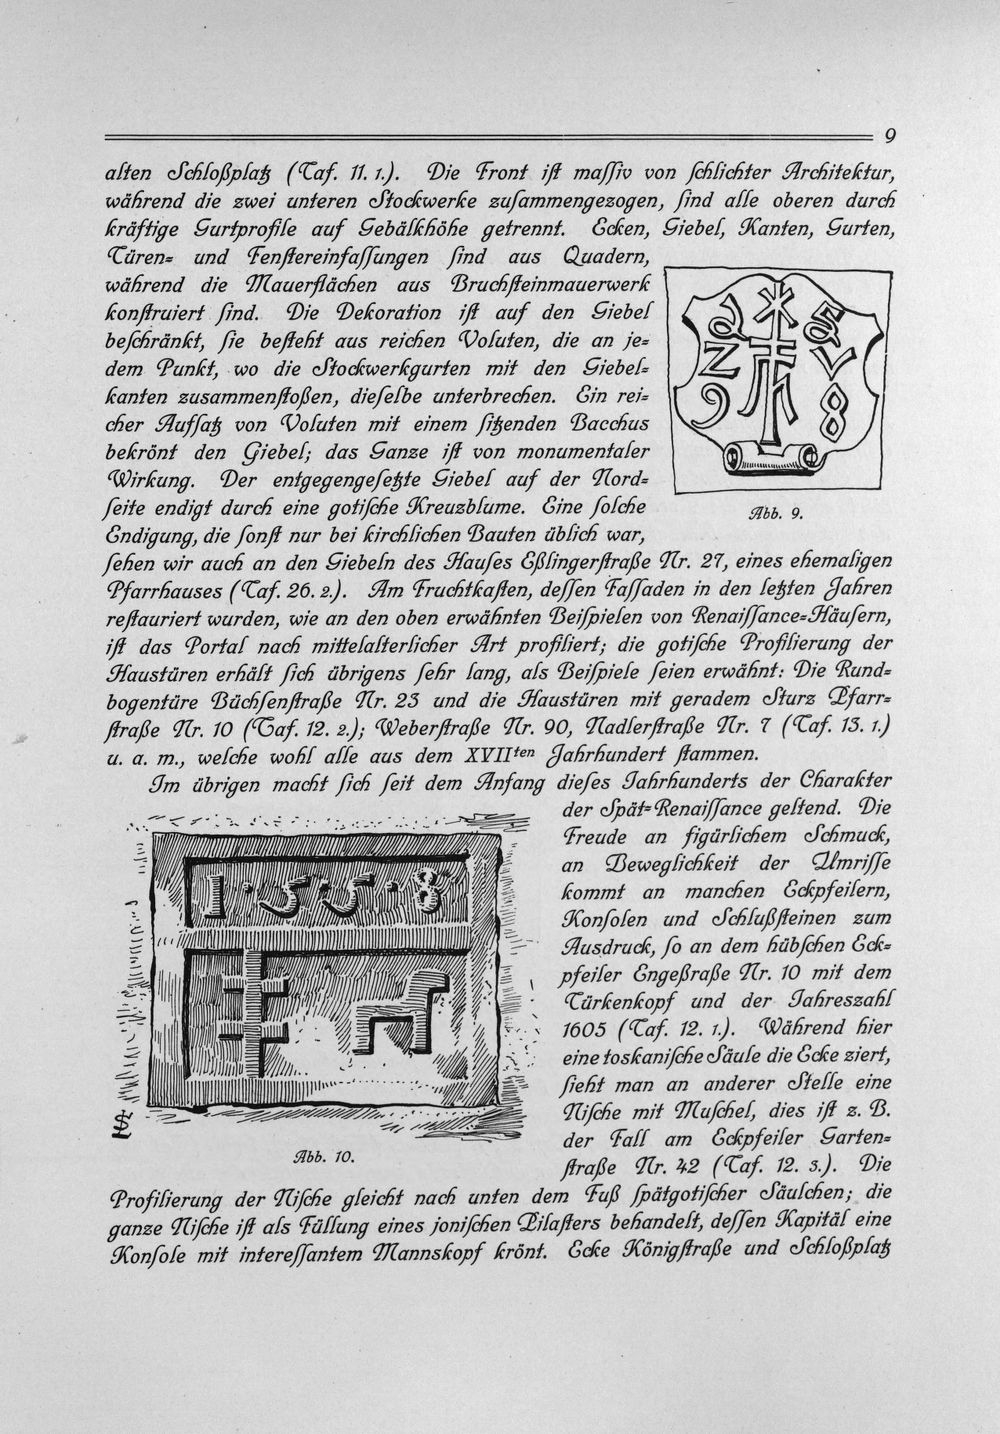 9
alten Schloßplatz (Taf. 11. 1.). Die Front iſt maſſiv von ſchlichter Architektur,
während die zwei unteren Stockwerke zuſammengezogen, ſind alle oberen durch
kräftige Gurtprofile auf Gebälkhöhe getrennt. Ecken, Giebel, Kanten, Gurten,
Türen= und Fenſtereinfaſſungen ſind aus Quadern,
während die Mauerflächen aus Bruchſteinmauerwerk
konſtruiert ſind. Die Dekoration iſt auf den Giebel
beſchränkt, ſie beſteht aus reichen Voluten, die an je=
dem Punkt, wo die Stockwerkgurten mit den Giebel=
kanten zusammenſtoßen, dieſelbe unterbrechen. Ein rei=
cher Aufſatz von Voluten mit einem ſitzenden Bacchus
bekrönt den Giebel; das Ganze iſt von monumentaler
Wirkung. Der entgegengeſetzte Giebel auf der Nord=
ſeite endigt durch eine gotiſche Kreuzblume. Eine ſolche
Endigung, die ſonſt nur bei kirchlichen Bauten üblich war,
L S
Z V
9 8
Abb. 9.
ſehen wir auch an den Giebeln des Hauſes Eßlingerſtraße Nr. 27, eines ehemaligen
Pfarrhauses (Taf. 26. 2.). Am Fruchtkaſten, deſſen Faſſaden in den letzten Jahren
reſtauriert wurden, wie an den oben erwähnten Beiſpielen von Renaiſſance=Häuſern,
iſt das Portal nach mittelalterlicher Art profiliert; die gotiſche Profilierung der
Haustüren erhält ſich übrigens ſehr lang, als Beiſpiele ſeien erwähnt: Die Rund=
bogentüre Büchſenſtraße Nr. 23 und die Haustüren mit geradem Sturz Pfarr=
ſtraße Nr. 10 (Taf. 12. 2.); Weberſtraße Nr. 90, Nadlerſtraße Nr. 7 (Taf. 13. 1.)
u. a. m., welche wohl alle aus dem XVIIten Jahrhundert ſtammen.
Im übrigen macht ſich ſeit dem Anfang dieſes Jahrhunderts der Charakter
der Spät=Renaiſſance geltend. Die
Freude an figürlichem Schmuck,
an Beweglichkeit der Umriſſe
kommt an manchen Eckpfeilern,
Konſolen und Schlußſteinen zum
Ausdruck, ſo an dem hübſchen Eck=
pfeiler Engeßraße Nr. 10 mit dem
Türkenkopf und der Jahreszahl
1605 (Taf. 12. 1.). Während hier
eine toskaniſche Säule die Ecke ziert,
ſieht man an anderer Stelle eine
Niſche mit Muſchel, dies iſt z. B.
der Fall am Eckpfeiler Garten=
ſtraße Nr. 42 (Taf. 12. 3.). Die
1·5·5·8
Abb. 10.
Profilierung der Niſche gleicht nach unten dem Fuß ſpätgotiſcher Säulchen; die
ganze Niſche iſt als Füllung eines joniſchen Pilaſters behandelt, deſſen Kapitäl eine
Konſole mit intereſſantem Mannskopf krönt. Ecke Königſtraße und Schloßplatz